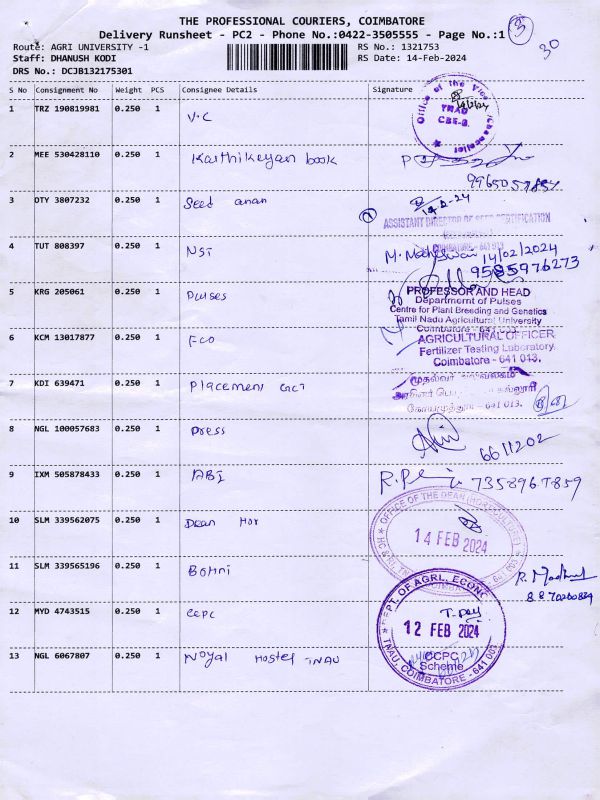 THE PROFESSIONAL COURIERS, COIMBATORE
Delivery Runsheet - PC2 - Phone No.:0422-3505555 - Page No.:1 3
30
Route: AGRI UNIVERSITY -1 RS No.: 1321753
Staff: DHANUSH KODI RS Date: 14-Feb-2024
DRS No.: DCJB132175301
S No Consignment No Weight PCS Consignee Details Signature
1 TRZ 190819981 0.250 1 V.C
Office of the Vice Chancellor
TNAU
CBE-3.
2 MEE 530428110 0.250 1 Karthikeyan book
9965057854
3 OTY 3807232 0.250 1 Seed
14-2-24
ASSISTANT DIRECTOR OF SEED CERTIFICATION
COIMBATORE - 641 013
4 TUT 808397 0.250 1 NST M. Matheswari 14/02/2024
9585976273
5 KRG 205061 0.250 1 Pulses
PROFESSOR AND HEAD
Department of Pulses
Centre for Plant Breeding and Genetics
Tamil Nadu Agricultural University
Coimbatore - 641 003.
6 KCM 13017877 0.250 1 FCO
AGRICULTURAL OFFICER
Fertilizer Testing Laboratory
Coimbatore - 641 013.
7 KDI 639471 0.250 1 Placement
முதல்வர் அலுவலகம்
கோயமுத்தூர் - 641 013.
8 NGL 100057683 0.250 1 Press
6611202
9 IXM 505878433 0.250 1 ABI
7358967859
10 SLM 339562075 0.250 1 Dean Hor
OFFICE OF THE DEAN (HORTICULTURE)
14 FEB 2024
11 SLM 339565196 0.250 1
12 MYD 4743515 0.250 1 CCPC
DEPT. OF AGRL. ECONO
12 FEB 2024
CCPC
Scheme
TNAU, COIMBATORE - 641 003
13 NGL 6067807 0.250 1 Noyal Hostel TNAU